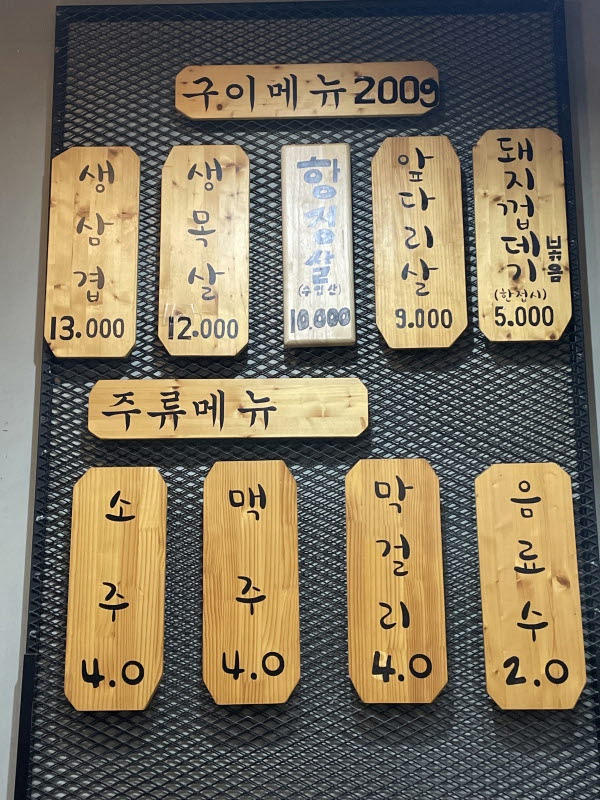 구이메뉴 200g
생삼겹
13.000
생목살
12.000
항정살
(수입산)
10.000
앞다리살
9.000
돼지껍데기
볶음
(한접시)
5.000
주류메뉴
소주
4.0
맥주
4.0
막걸리
4.0
음료수
2.0